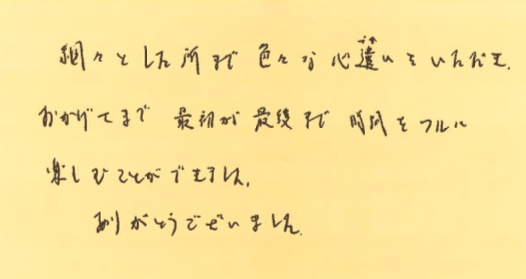 細々とした所まで色々な心遣いをいただき、
おかげさまで 最初から最後まで 時間をフルに
楽しむことができました。
ありがとうございました。